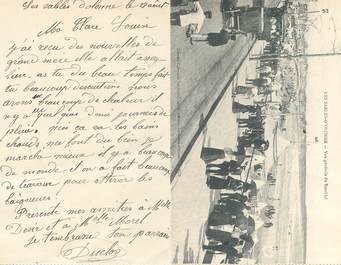 Les Sables d'olonne le
Ma Chère Louise
j'ai reçu des nouvelles de
grand'mère elle allait assez
bien. as tu du beau temps fait
tu beaucoup d'excutions nous
avons beaucoup de chaleur il
n'y a quelques une journée de
pluie. rien ça va. les bains
chauds me font du bien je
marche mieux il y a beaucoup
de monde et on a fait beaucoup
de travaux pour attirer les
baigneurs.
Présente mes amitiés à Mlle
et à Mlle Morel
Je t'embrasse ton parrain
LES SABLES-D'OLONNE — Vue générale du Remblai